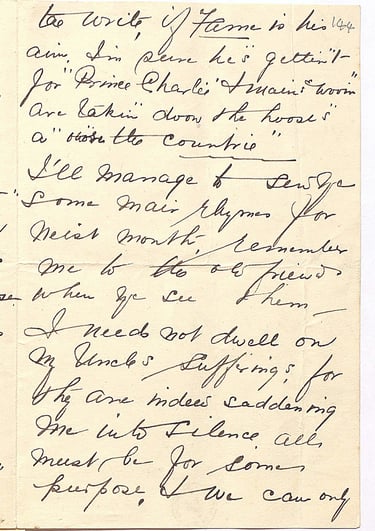 to write, if Fame is his 144
aim. I'm sure he's gettin't
for "Prince Charlie" & mair's wooin
are takin' doon the hooses
a' ower the countrie"
I'll manage to sen' ye
some mair rhymes for
neist month, remember
me to the old friends
when ye see them—
I needs not dwell on
my Uncle's sufferings, for
they are indeed saddening
me into silence. all
must be for some
purpose, & we can only